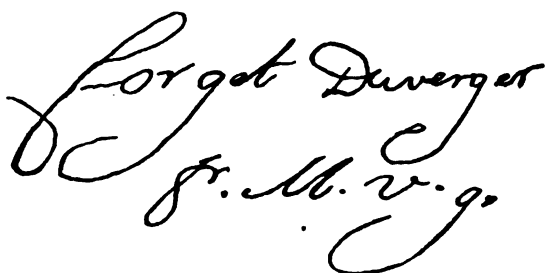 Forget Duverger
pr. M. v. g.